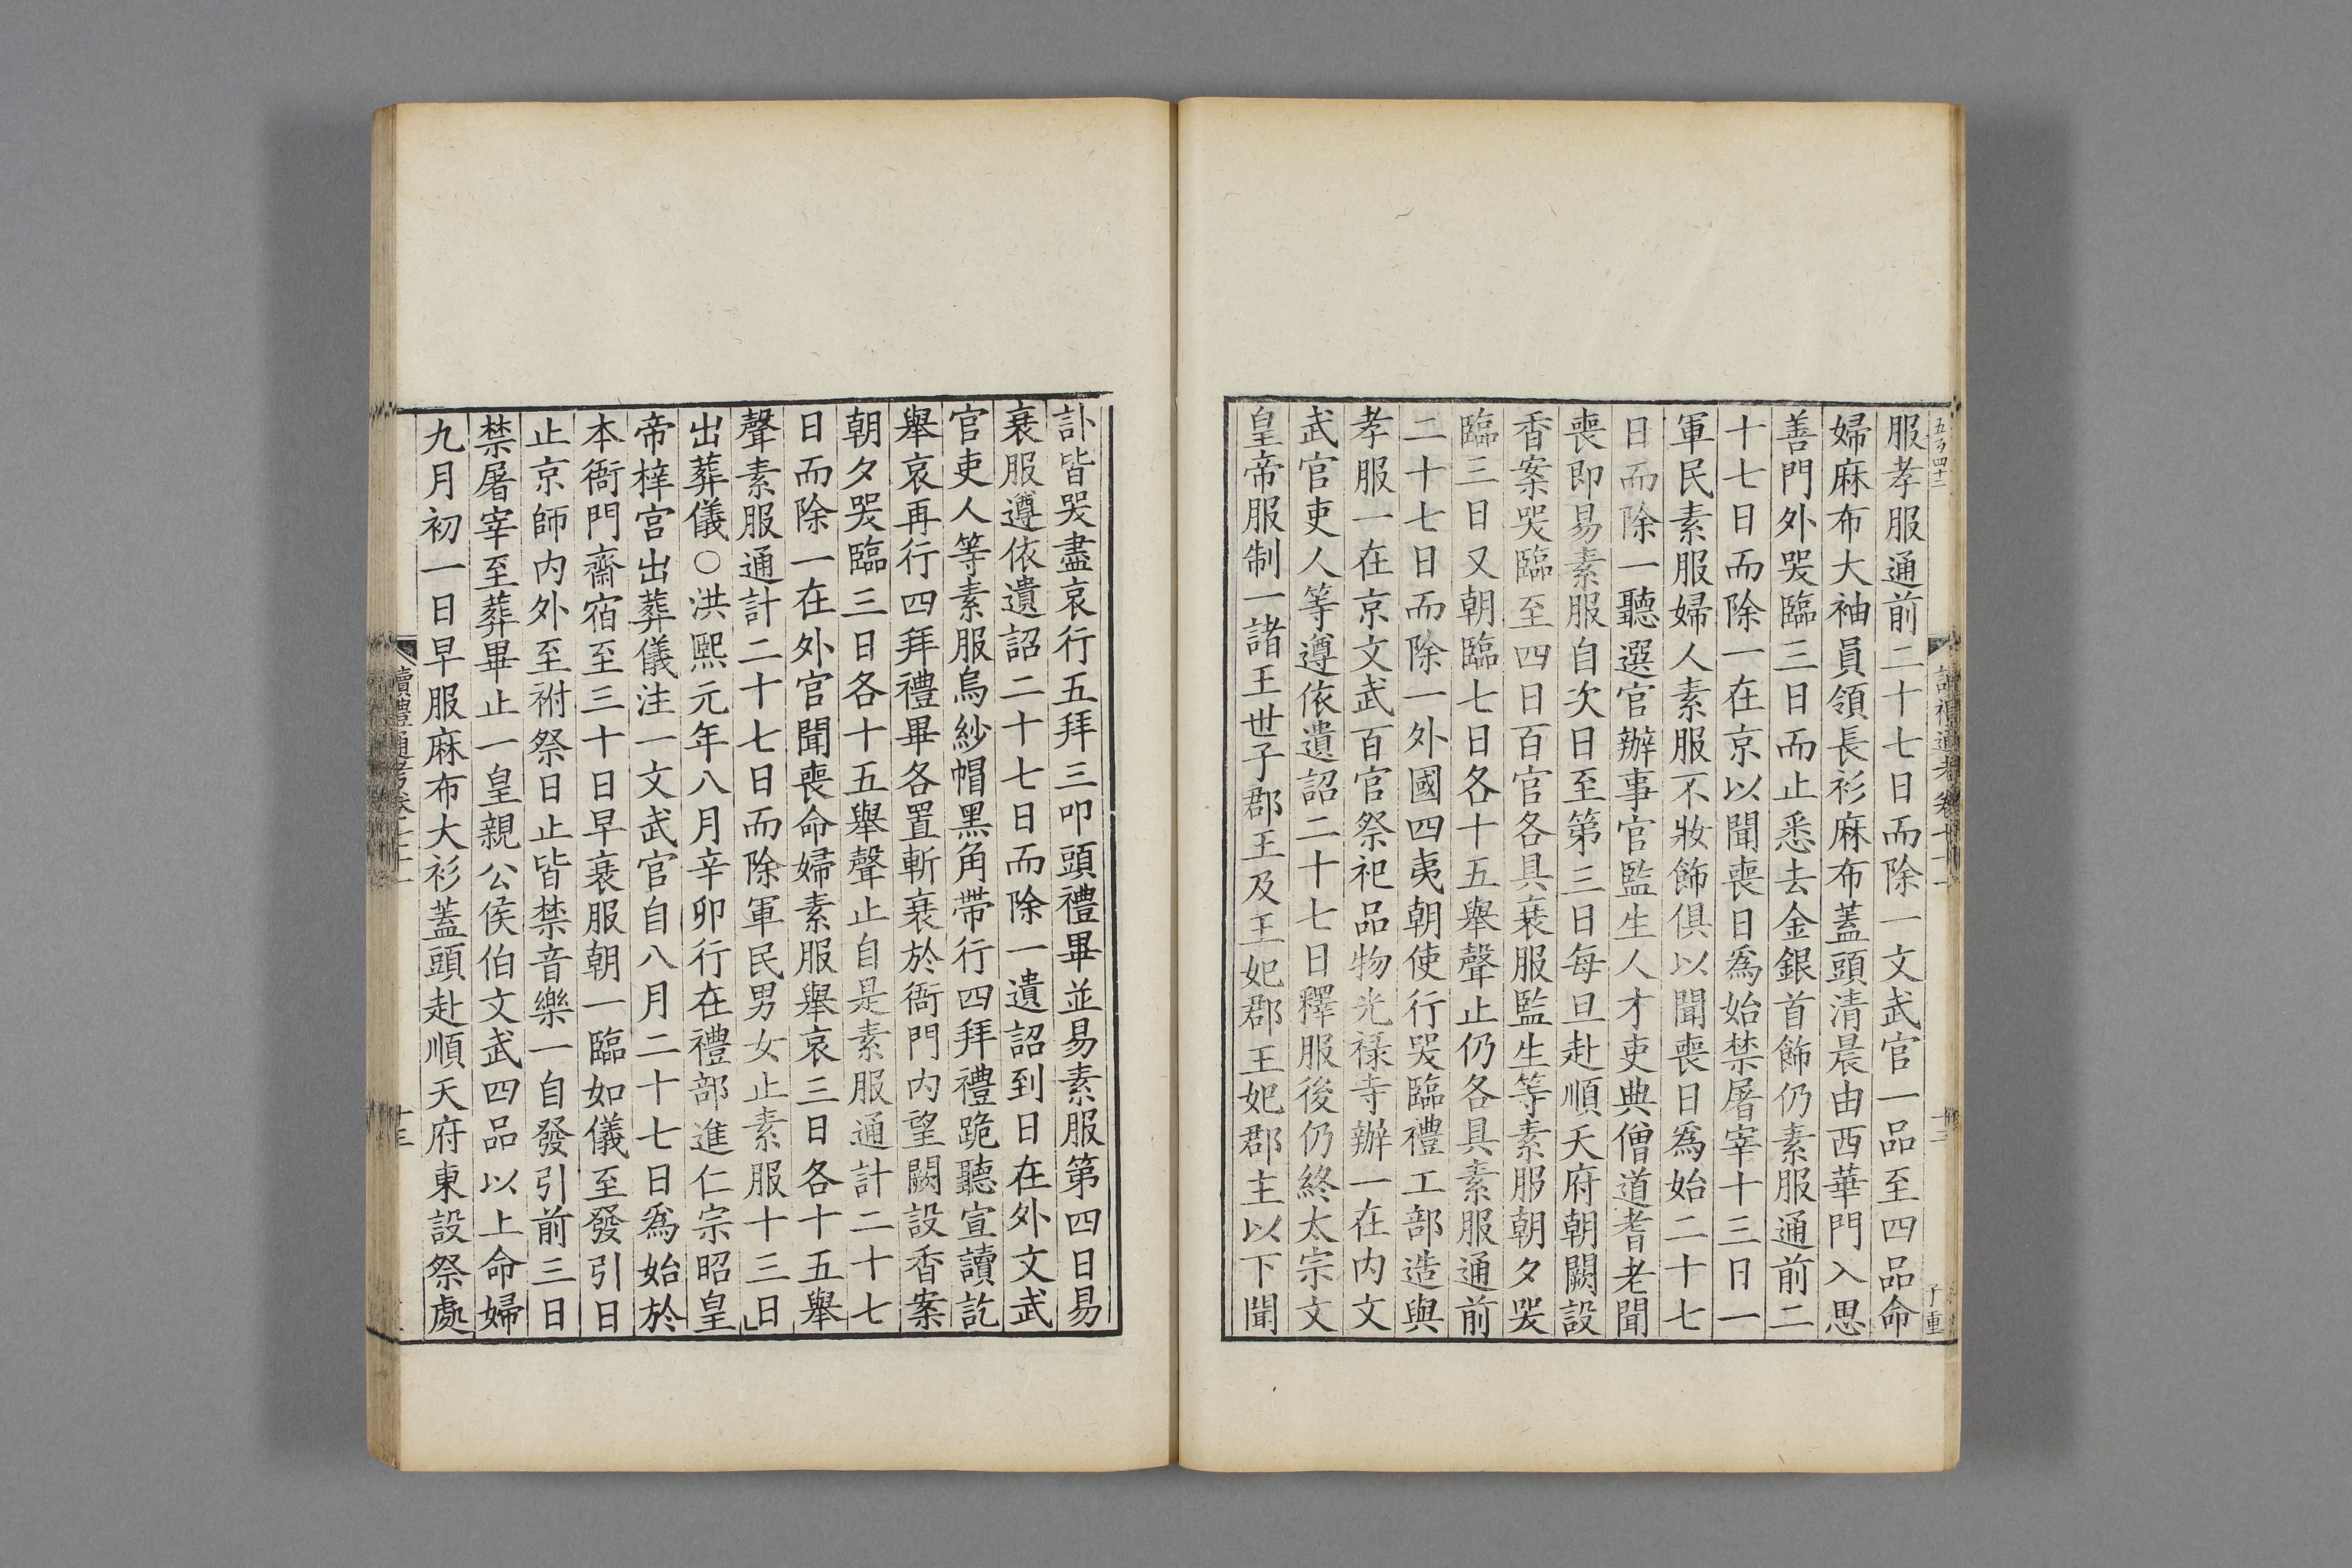 服孝服通前二十七日而除一文武官一品至四品命
婦麻布大袖員領長衫麻布蓋頭清晨由西華門入思
善門外哭臨三日而止悉去金銀首飾仍素服通前二
十七日而除一在京以聞喪日爲始禁屠宰十三日一
軍民素服婦人素服不妝飾俱以聞喪日爲始二十七
日而除一聽選官辦事官監生人才吏典僧道耆老聞
喪即易素服自次日至第三日每旦赴順天府朝闕設
香案哭臨至四日百官各具衰服監生等素服朝夕哭
臨三日又朝臨七日各十五舉聲止仍各具素服通前
二十七日而除一外國四夷朝使行哭臨禮工部造與
孝服一在京文武百官祭祀品物光禄寺辦一在内文
武官吏人等遵依遺詔二十七日釋服後仍終太宗文
皇帝服制一諸王世子郡王及王妃郡王妃郡主以下聞
訃皆哭盡哀行五拜三叩頭禮畢並易素服第四日易
衰服遵依遺詔二十七日而除一遺詔到日在外文武
官吏人等素服烏紗帽黑角帶行四拜禮跪聽宣讀訖
舉哀再行四拜禮畢各置斬衰於衙門内望闕設香案
朝夕哭臨三日各十五舉聲止自是素服通計二十七
日而除一在外官聞喪命婦素服舉哀三日各十五舉
聲素服通計二十七日而除軍民男女止素服十三日
出葬儀○洪熙元年八月辛卯行在禮部進仁宗昭皇
帝梓宫出葬儀注一文武官自八月二十七日爲始於
本衙門齋宿至三十日早衰服朝一臨如儀至發引日
止京師内外至祔祭日止皆禁音樂一自發引前三日
禁屠宰至葬畢止一皇親公侯伯文武四品以上命婦
九月初一日早服麻布大衫蓋頭赴順天府東設祭處